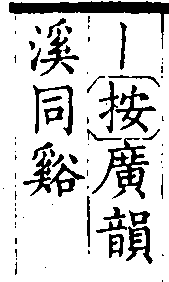 ｜按廣韻
溪同谿